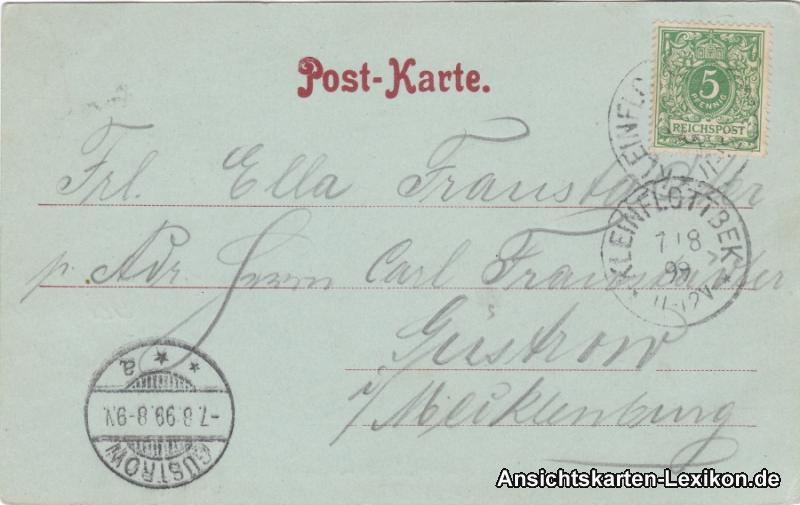 Post-Karte.
5
PFENNIG
REICHSPOST
Frl. Ella
p. Adr. Herrn Carl
Güstrow
i/Mecklenburg
KLEINFLOTTBEK
7/8
99
11-12V
a
-7.8.99.8-9N.
GÜSTROW
Ansichtskarten-Lexikon.de